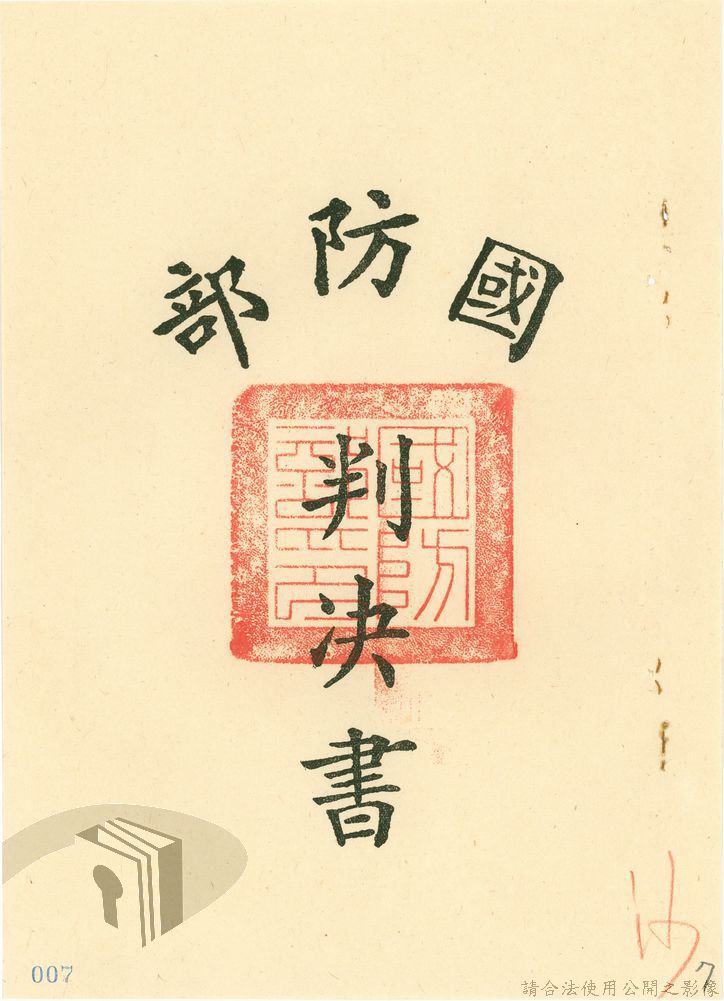 國防部
判決書
007
7
請合法使用公開之影像